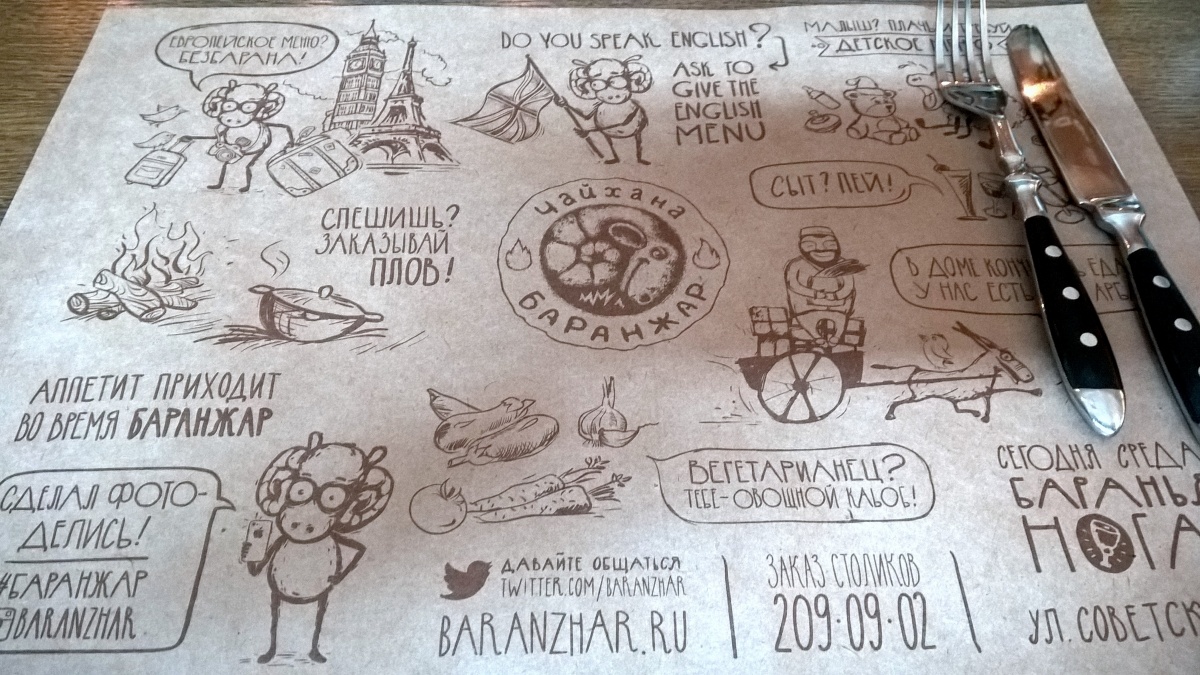 ЕВРОПЕЙСКОЕ МЕНЮ?
БЕЗБАРАНА!
DO YOU SPEAK ENGLISH?
ASK TO
GIVE THE
ENGLISH
MENU
МАЛЫШ?
ДЕТСКОЕ
СЫТ? ПЕЙ!
СПЕШИШЬ?
ЗАКАЗЫВАЙ
ПЛОВ!
Чайхана
БАРАНЖАР
В ДОМЕ
У НАС ЕСТЬ
АППЕТИТ ПРИХОДИТ
ВО ВРЕМЯ БАРАНЖАР
СДЕЛАЛ ФОТО-
ДЕЛИСЬ!
#БАРАНЖАР
BARANZHAR
ВЕГЕТАРИАНЕЦ?
ТЕБЕ-ОВОЩНОЙ КЬЫБ!
ДАВАЙТЕ ОБЩАТЬСЯ
TWITTER.COM/BARANZHAR
BARANZHAR.RU
ЗАКАЗ СТОЛИКОВ
209·09·02
СЕГОДНЯ СРЕДА
БАРАНЬЯ
НОГА
УЛ. СОВЕТСК